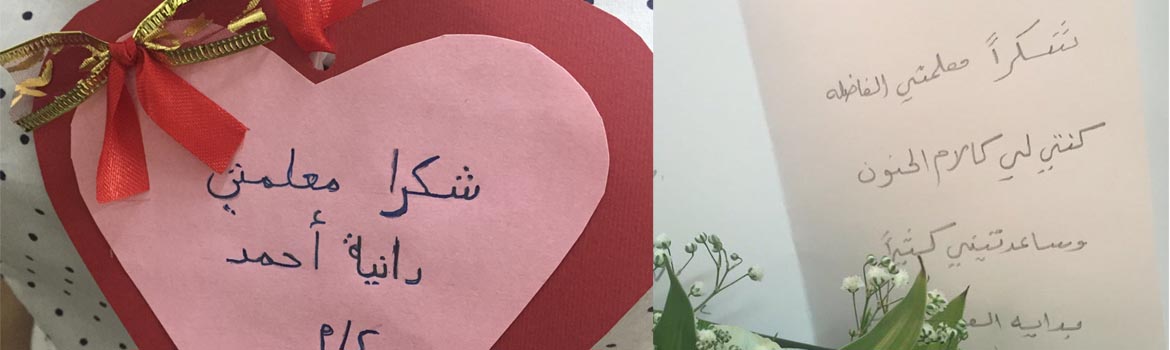 شكرا معلمتي
رانية أحمد
شكراً معلمتي الفاضله
كنتي لي كالام الحنون
وساعدتيني كثيراً
بدايه